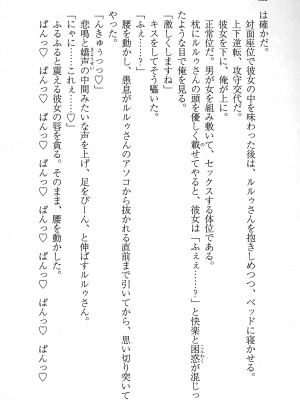 は確かだ。
対面座位で彼女の中を味わった後は、ルルゥさんを抱きしめつつ、ベッドに寝かせる。
上下逆転、攻守交代だ。
彼女を下に、俺が上に。
正常位だ。男が女を組み敷いて、セックスする体位である。
枕にルルゥさんの頭を優しく載せてやると、彼女は「ふぇぇ……?」と快楽と困惑が混じっ
たような目で俺を見る。
「激しくしますね」
キスをしてそう囁いた。
「ふぇ……?」
腰を動かし、愚息がルルゥさんのアソコから抜かれる直前まで引いてから、思い切り突いて
やった。
「んきゅうっっ♡」
「にゃに……これぇ……♡」
悲鳴と嬌声の中間みたいな声を上げ、足をぴーん、と伸ばすルルゥさん。
ふるふると震える彼女の唇を貪る。そのまま、腰を動かした。
ぱんっ♡ ぱんっ♡ ぱんっ♡ ぱんっ♡ ぱんっ♡ ぱんっ♡